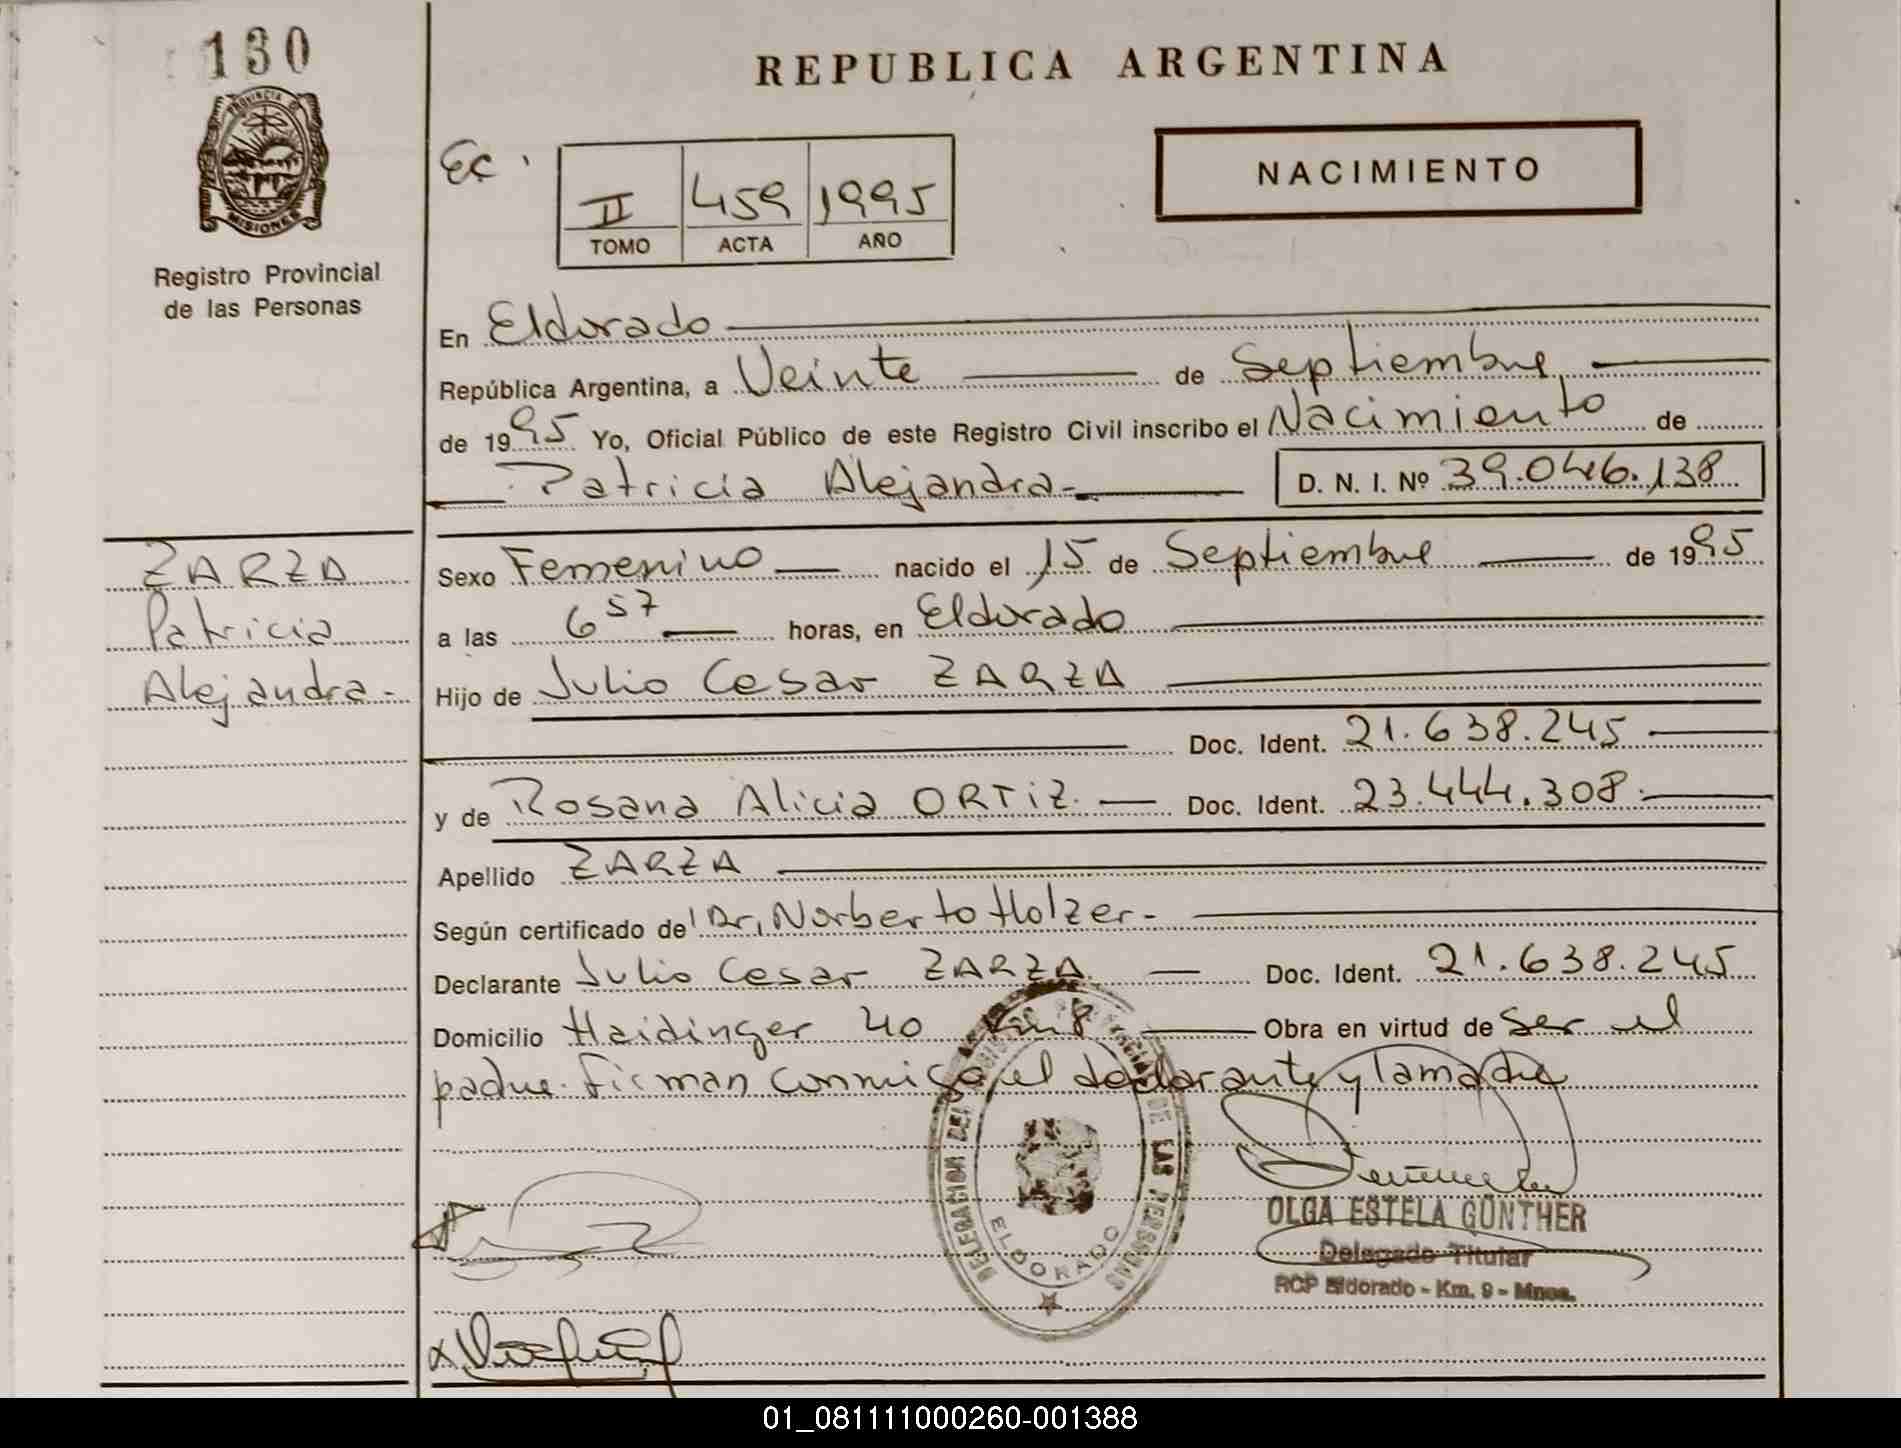 130
REPUBLICA ARGENTINA
PROVINCIA DE
MISIONES
Registro Provincial
de las Personas
Ec.
II 459 1995
TOMO ACTA AÑO
NACIMIENTO
En Eldorado
República Argentina, a Veinte de Septiembre
de 1995 Yo, Oficial Público de este Registro Civil inscribo el Nacimiento de
Patricia Alejandra- D. N. I. Nº 39.046.138
ZARZA
Patricia
Alejandra-
Sexo Femenino nacido el 15 de Septiembre de 1995
a las 6 57 horas, en Eldorado
Hijo de Julio Cesar ZARZA
Doc. Ident. 21.638.245
y de Rosana Alicia ORTIZ. Doc. Ident. 23.444.308.
Apellido ZARZA
Según certificado de Dr. Norberto Holzer-
Declarante Julio Cesar ZARZA Doc. Ident. 21.638.245
Domicilio Haidinger 40 Km 8 Obra en virtud de ser el
padre. Firman conmigo el declarante y la madre
DELEGACION DEL REGISTRO PROVINCIAL DE LAS PERSONAS
ELDORADO
OLGA ESTELA GÜNTHER
Delegado Titular
RCP Eldorado - Km. 9 - Mnes.
01_081111000260-001388